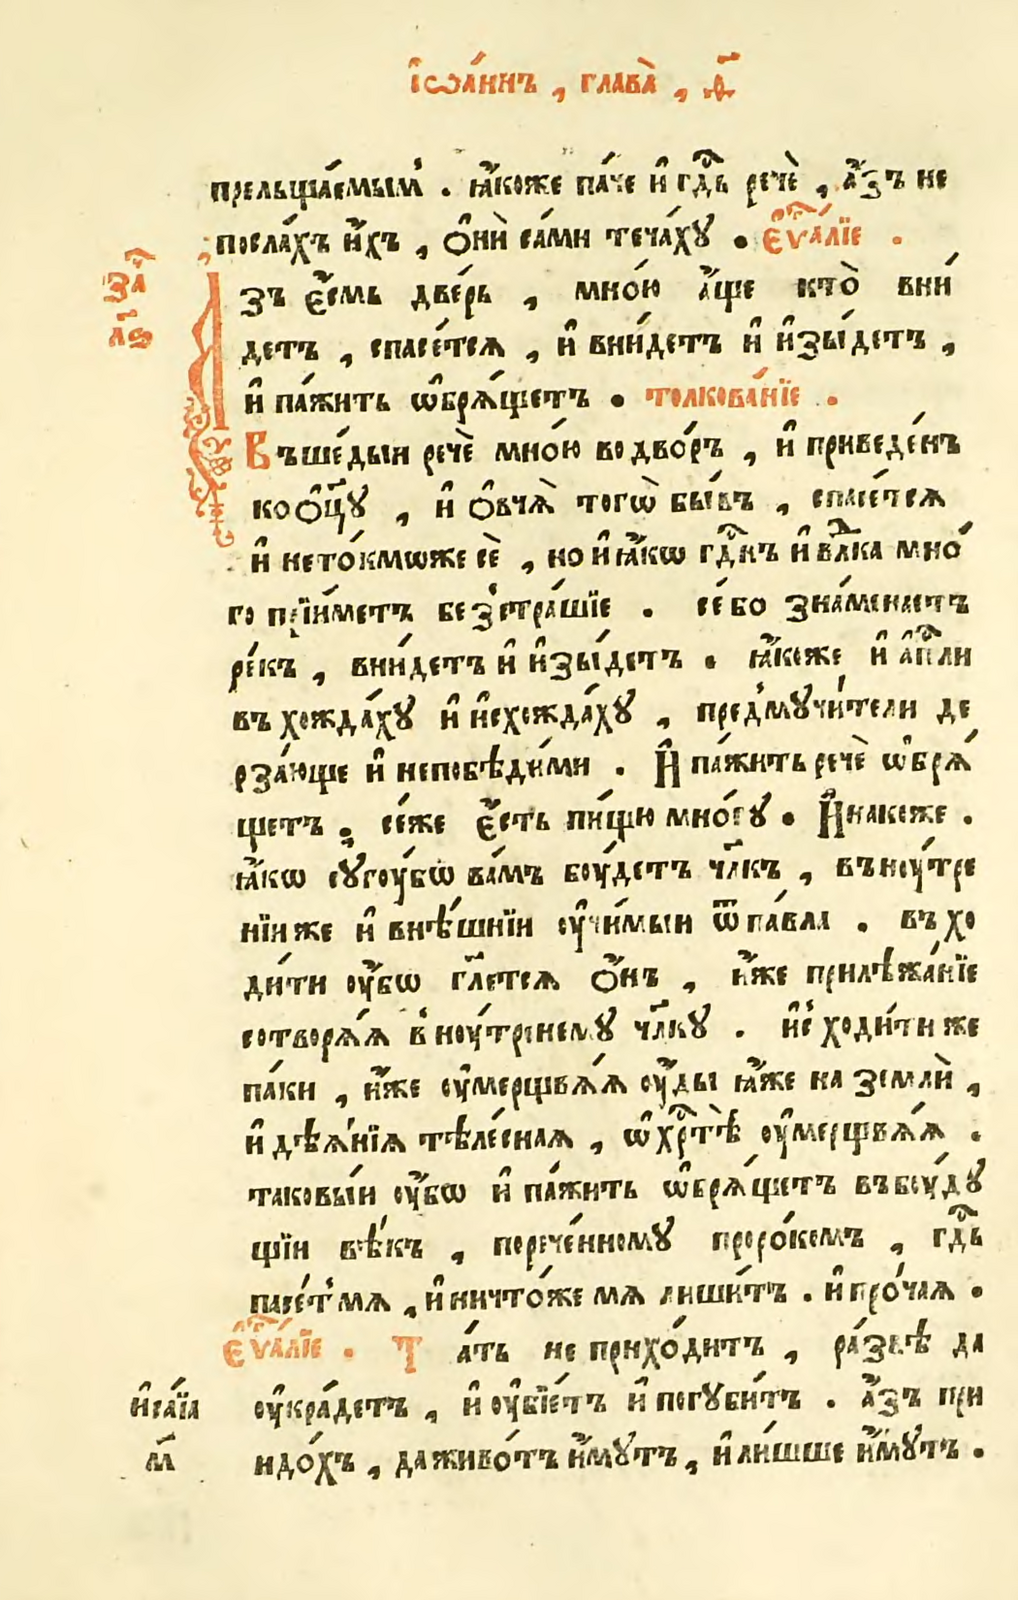 І҆ѡа́ннъ , глава̀ , ѳ҃
прельща́емым̾ . ꙗ҆́коже па́че и҆ гд҇ь речѐ , а҆́зъ не
посла́хъ и҆́хъ , ѻ҆нѝ са́ми теча́хꙋ . є҆ѵⷢ҇а́лїе .
за҇
А҆́зъ є҆́смь две́рь , мно́ю а҆́ще кто̀ вни́
лѕ҃
детъ , спасе́тсѧ , и҆ вни́детъ и҆ и҆зы́детъ ,
и҆ па́жить ѡ҆брѧ́щетъ . толкова́нїе .
Въше́дыи речѐ мно́ю во дво́ръ , и҆ приведе́нъ
ко ѻ҆ц҃ꙋ , и҆ ѻ҆вча̀ того̀ бы́въ , спасе́тсѧ
и҆ не то́кмѡже сѐ , но и҆ ꙗ҆́кѡ гд҇нъ и҆ влⷣка мно́
го прїи́метъ безстра́шїе . се́ бо зна́менаетъ
ре́къ , вни́детъ и҆ и҆зы́детъ . ꙗ҆́коже и҆ а҆пⷭ҇ли
въхожда́хꙋ и҆ и҆схожда́хꙋ , пред̾мꙋчи́тели де
рза́юще и҆ непобѣди́ми . И҆ па́жить речѐ ѡ҆брѧ́
щетъ , се́же є҆́сть пи́щю мно́гꙋ . И҆накоже .
ꙗ҆́кѡ сꙋгоу́бѡ ва́мъ боу́детъ чл҃къ , въноу́тре
нїи же и҆ внѣ́шнїи оу҆чи́мыи ѿ па́вла . въхо
ди́ти оу҆́бѡ гл҃етсѧ ѻ҆́нъ , и҆́же прилѣжа́нїе
сотворѧ́ѧ в̾ноу́тренемꙋ чл҃кꙋ . и҆с̾ходи́ти же
па́ки , и҆́же оу҆мерщвѧ́ѧ оу҆́ды ꙗ҆́же на землѝ ,
и҆ дѣѧ́нїѧ тѣле́снаѧ , ѡ҆ хрⷭ҇тѣ̀ оу҆мерщвѧ́ѧ .
таковы́и оу҆́бѡ и҆ па́жить ѡ҆брѧ́щетъ въбоу́дꙋ
щїи вѣ́къ , порече́нномꙋ проро́комъ , гд҇ь
пасе́т̾ мѧ , и҆ ничто́же мѧ лиши́тъ . и҆ про́чаѧ .
є҆ѵⷢ҇а́лїе . Та́ть не прихо́дитъ , ра́звѣ да
и҆са́їа оу҆кра́детъ , и҆ оу҆бїе́тъ и҆ погꙋби́тъ . а҆́зъ при
м҃ идо́хъ , да живо́тъ и҆́мꙋтъ , и҆ ли́шше и҆́мꙋтъ .